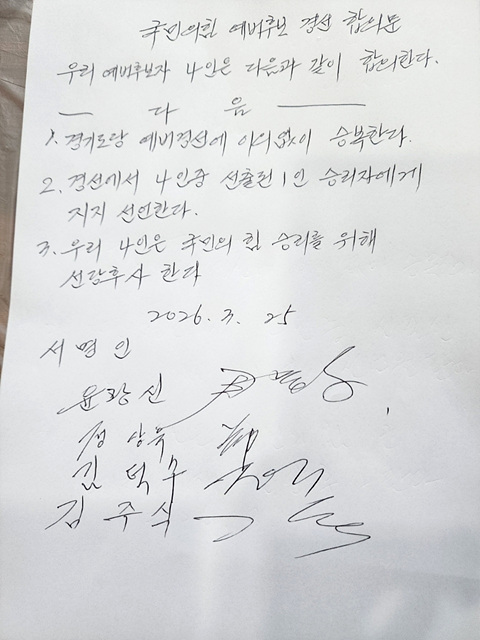 국민의힘 예비후보 경선 합의문
우리 예비후보자 4인은 다음과 같이 합의한다.
— 다 음 —
1. 경기도당 예비경선에 이의없이 승복한다.
2. 경선에서 4인중 선출된 1인 승리자에게
지지 선언한다.
3. 우리 4인은 국민의 힘 승리를 위해
선당후사 한다
2026. 3. 25
서명인
윤광신
정상욱
김덕수
김주식